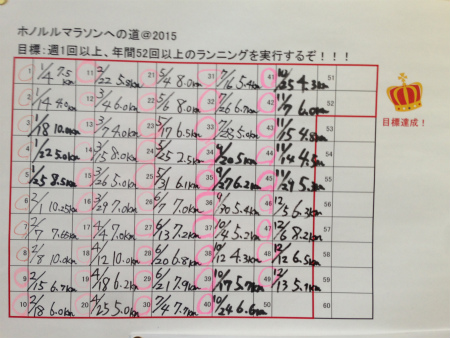 ホノルルマラソンへの道@2015
目標:週1回以上、年間52回以上のランニングを実行するぞ!!!
1 1/4 7.5km 11 2/22 5.8km 21 5/4 8.0km 31 7/16 5.4km 41 10/25 4.3km 51
2 1/14 4.0km 12 3/4 6.0km 22 5/6 8.0km 32 7/26 6.7km 42 11/7 6.0km 52
3 1/18 10.0km 13 3/7 4.0km 23 5/17 6.5km 33 7/28 5.0km 43 11/15 4.8km 53
4 1/22 5.0km 14 3/15 8.0km 24 5/25 2.5km 34 20.5km 44 11/24 4.5km 54
5 1/25 8.5km 15 3/26 5.0km 25 5/31 6.1km 35 27 6.2km 45 11/29 5.3km 55
6 2/1 10.25km 16 3/29 7.0km 26 6/7 7.0km 36 9/30 5.4km 46 12/5 6.3km 56
7 2/7 7.65km 17 4/2 7.0km 27 6/13 7.2km 37 10/4 5.2km 47 12/6 8.2km 57
8 2/8 10.0km 18 4/12 10.0km 28 6/20 6.8km 38 10/12 4.3km 48 12/12 6.5km 58
9 2/15 6.7km 19 4/18 6.2km 29 6/21 7.9km 39 10/17 5.7km 49 12/13 5.1km 59
10 2/18 6.0km 20 4/25 5.0km 30 7/4 7.7km 40 10/24 6.6km 50 60
目標達成!